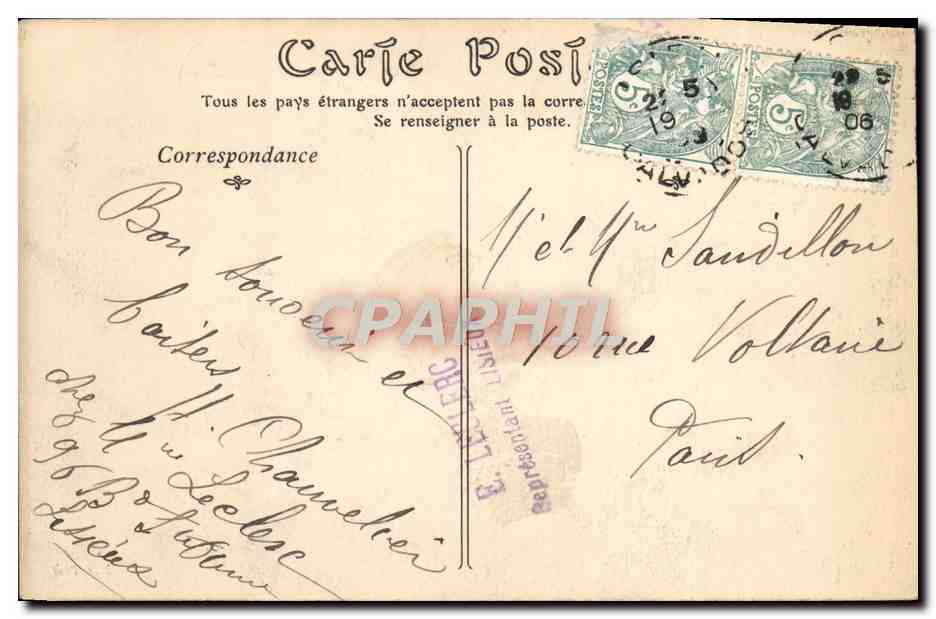 Carte Post
Tous les pays étrangers n'acceptent pas la corre
Se renseigner à la poste.
Correspondance
Bon souvenir et
baisers
Chauvelier
chez Mme Leclerc
96 Bd
Lisieux
M et Mme Sandillon
10 rue Voltaire
Paris
E. LECLERC
Représentant LISIEUX
POSTES 5
POSTES 5
5
19
CALVADOS
5
18
06
CPARHTIL